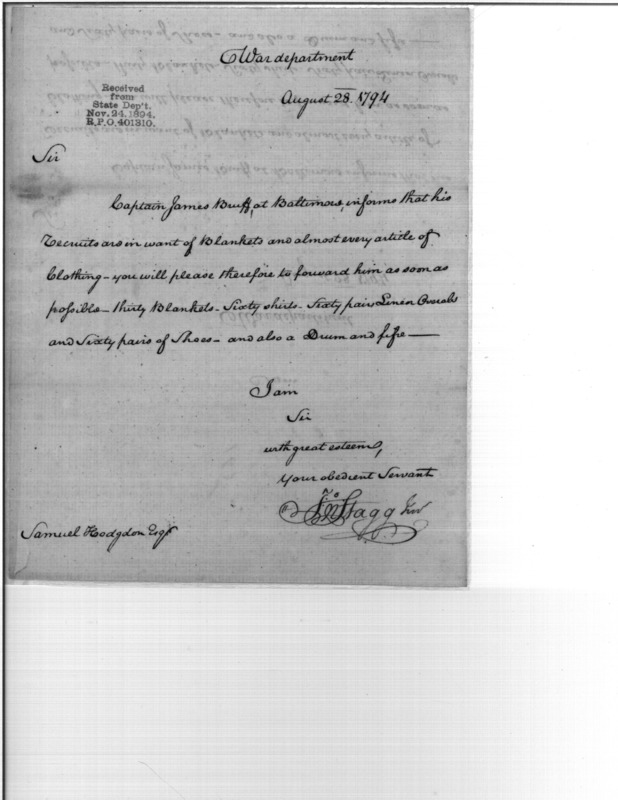 War department
August 28. 1794
Received
from
State Dep't.
Nov. 24. 1894.
R.P.O. 401310.
Sir
Captain James Bruff, at Baltimore, informs that his
Recruits are in want of Blankets and almost every article of
Clothing – you will please therefore to forward him as soon as
possible – thirty Blankets – Sixty shirts – Sixty pairs Linen Overalls
and Sixty pairs of Shoes – and also a Drum and fife —
I am
Sir
with great esteem,
Your obedient Servant
Jno Stagg Junr
Samuel Hodgdon Esqr